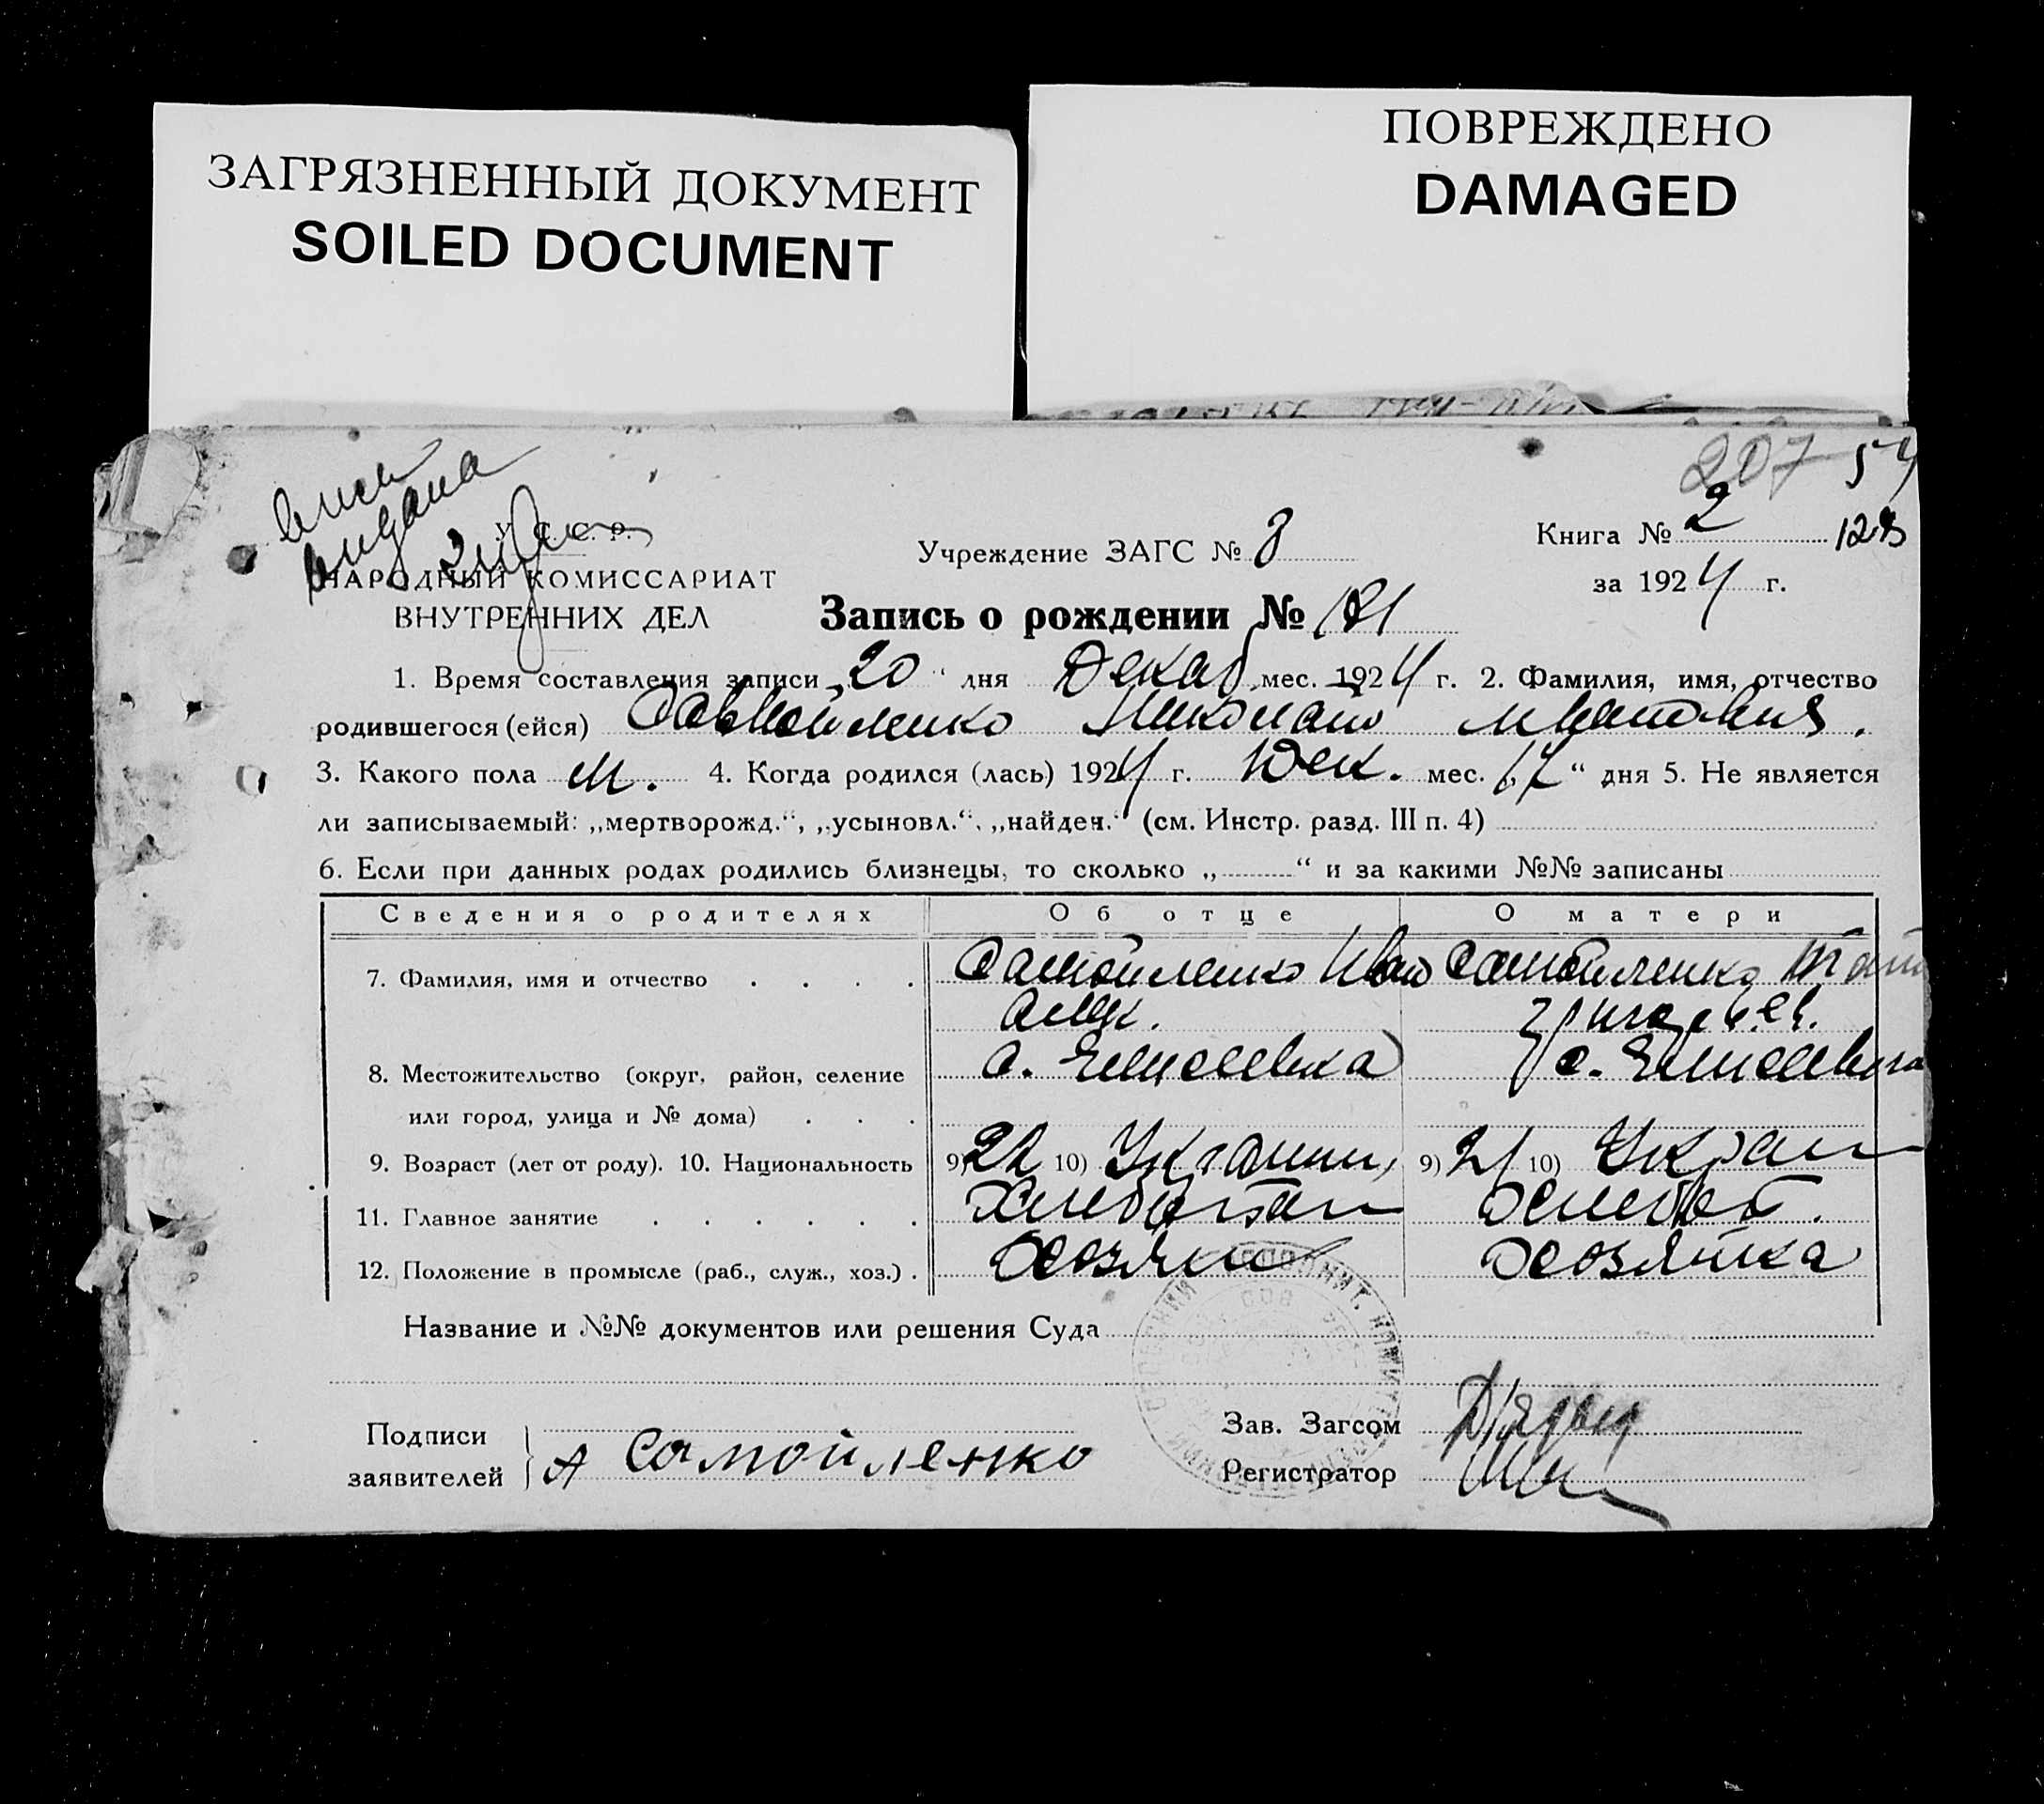 ЗАГРЯЗНЕННЫЙ ДОКУМЕНТ
SOILED DOCUMENT
ПОВРЕЖДЕНО
DAMAGED
207 54
У. С. С. Р.
НАРОДНЫЙ КОМИССАРИАТ
ВНУТРЕННИХ ДЕЛ
Учреждение ЗАГС № 8
Книга № 2
за 1924 г.
Запись о рождении №
1. Время составления записи „20“ дня Декаб. мес. 1924 г. 2. Фамилия, имя, отчество
родившегося (ейся) Самойленко Николай Иванович.
3. Какого пола м. 4. Когда родился (лась) 1924 г. Дек. мес. „17“ дня 5. Не является
ли записываемый: „мертворожд.“, „усыновл.“, „найден.“ (см. Инстр. разд. III п. 4)
6. Если при данных родах родились близнецы, то сколько „ “ и за какими №№ записаны
Сведения о родителях Об отце О матери
7. Фамилия, имя и отчество Самойленко Иван Самойленко
Алек. Григорьев.
8. Местожительство (округ, район, селение с. Елисеевка с. Елисеевка
или город, улица и № дома)
9. Возраст (лет от роду). 10. Национальность 9) 22 10) Украин 9) 21 10) Украин
11. Главное занятие
12. Положение в промысле (раб., служ., хоз.) Хозяин Хозяйка
Название и №№ документов или решения Суда
Подписи
заявителей А Самойленко
Зав. Загсом
Регистратор